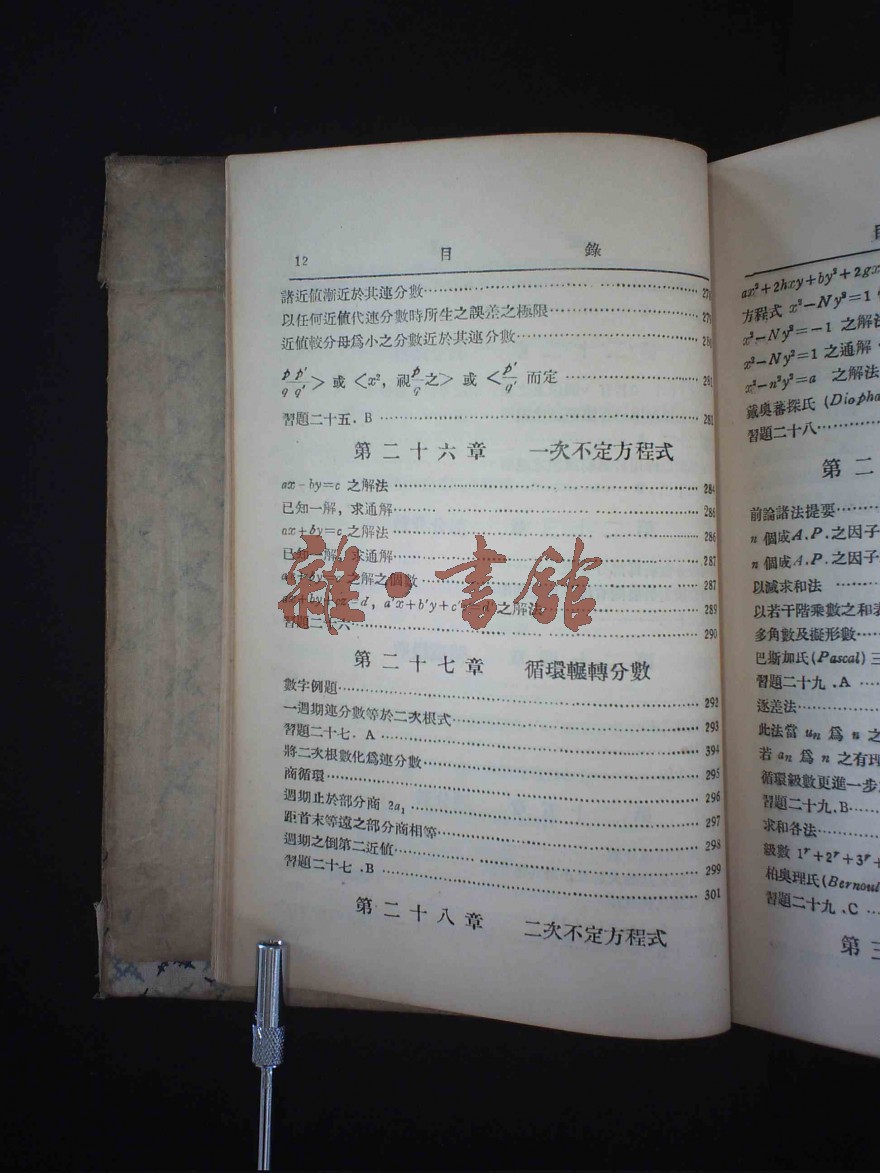 12 目 錄
諸近値漸近於其連分數
以任何近値代連分數時所生之誤差之極限
近値較分母爲小之分數近於其連分數
p/q p'/q' > 或 <x², 視 p/q 之> 或 < p'/q' 而定 281
習題二十五．B 281
第二十六章 一次不定方程式
ax－by＝c 之解法 284
已知一解，求通解 286
ax＋by＝c 之解法 286
已知一解，求通解 287
之解之個數 287
ax＋by＋cz＝d，a'x＋b'y＋c'z＝d' 之解法 289
習題二十六 290
第二十七章 循環輾轉分數
數字例題 292
一週期連分數等於二次根式 293
習題二十七．A 394
將二次根數化爲連分數 295
商循環 296
週期止於部分商 2a₁ 297
距首末等遠之部分商相等 298
週期之倒第二近値 299
習題二十七．B 301
第二十八章 二次不定方程式
雜·書館
目
ax²＋2hxy＋by²＋2gx
方程式 x²－Ny²＝1
x²－Ny²＝－1 之解法
x²－Ny²＝1 之通解
x²－n²y²＝a 之解法
戴奥蕃探氏 (Diopha
習題二十八
第二
前論諸法提要
n 個成A.P.之因子
n 個成A.P.之因子
以減求和法
以若干階乘數之和表
多角數及擬形數
巴斯加氏(Pascal)三
習題二十九．A
逐差法
此法當 un 爲 n 之
若 an 爲 n 之有理
循環級數更進一步
習題二十九．B
求和各法
級數 1ʳ＋2ʳ＋3ʳ＋
柏奥理氏(Bernoul
習題二十九．C
第三